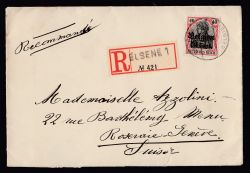 Recommandé
R
ELSENE 1
№ 421
Mademoiselle Azzolini
22 rue Barthélemy-Menn
Roseraie-Genève
Suisse